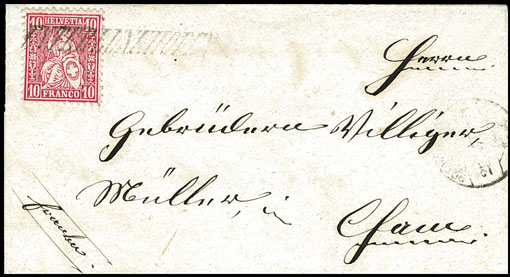 10 HELVETIA 10
10 FRANCO 10
Herrn
Gebrüdern Villiger,
Müller, in Cham
franko.